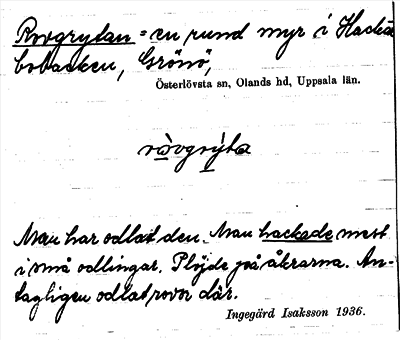 Rovgrytan = en rund myr i Hacks-
bobacken, Grönö,
Österlövsta sn, Olands hd, Uppsala län.
ròvgrýta
Man har odlat den. Man hackade mest
i små odlingar. Plöjde på åkrarna. An-
tagligen odlat rovor där.
Ingegärd Isaksson 1936.